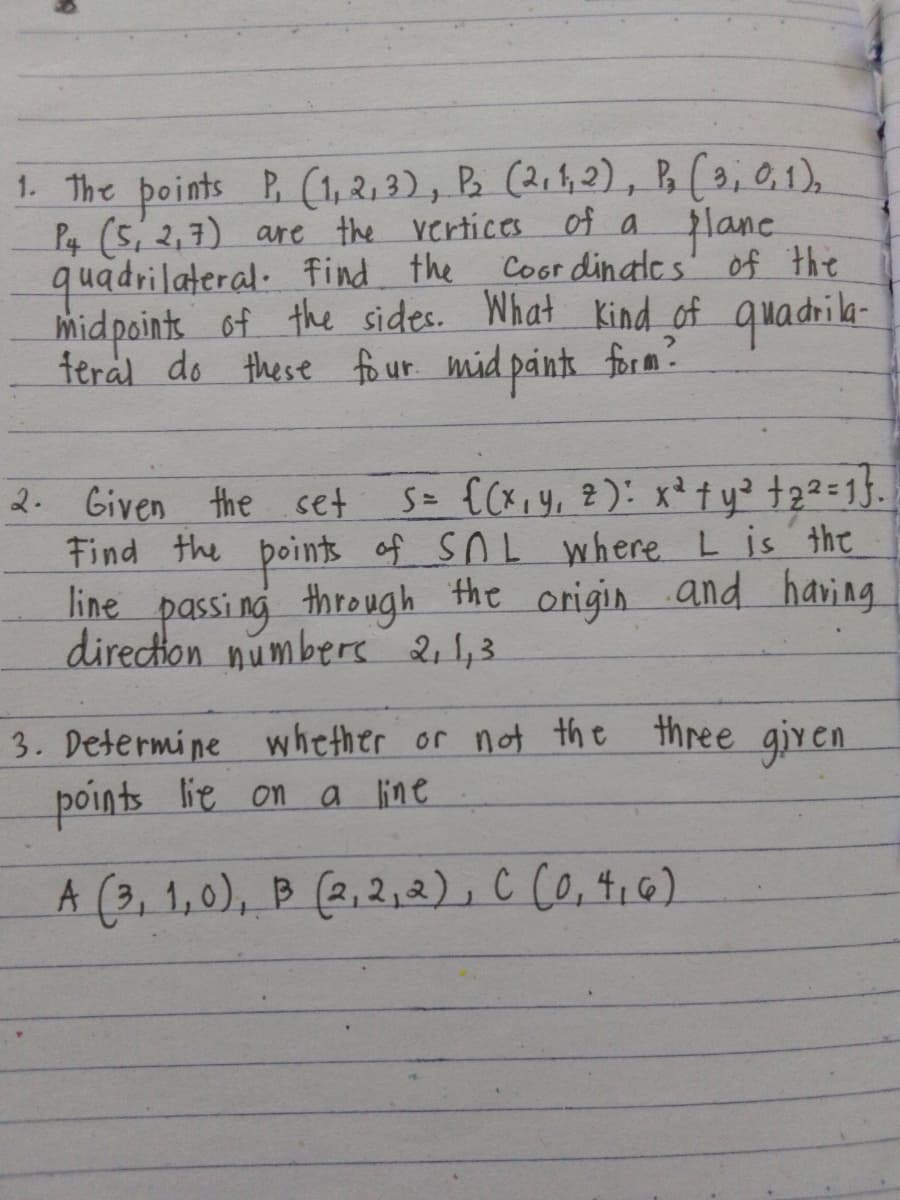 1. The points P₁ (1,2,3), P₂ (2,1,2), P₃ (3,0,1),
P₄ (5,2,7) are the vertices of a plane
quadrilateral. Find the Coordinates of the
midpoints of the sides. What Kind of quadrila-
teral do these four midpoints form?
2. Given the set S= {(x,y,z): x²+y²+z²=1}.
Find the points of S∩L where L is the
line passing through the origin and having
direction numbers 2,1,3
3. Determine whether or not the three given
points lie on a line
A (3,1,0), B (2,2,2), C (0,4,6)